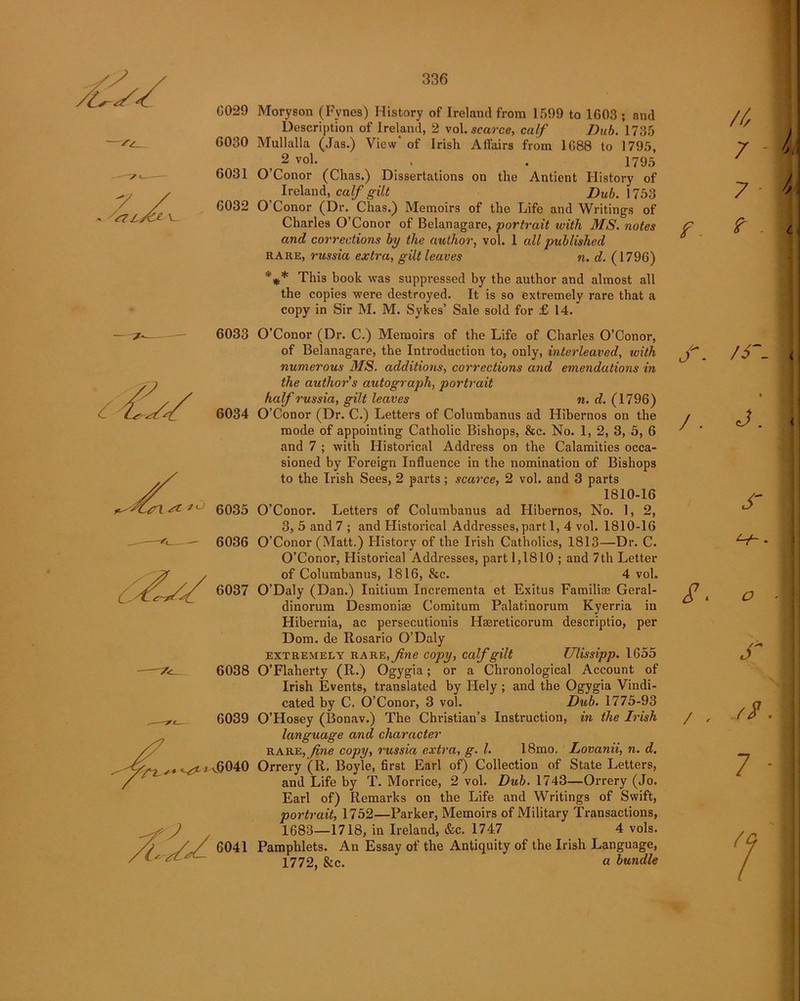 336
6029 Moryson (Fynes) History of Ireland from 1599 to 1603 ; and
Description of Ireland, 2 vol. scarce, calf Dub. 1735
6030 Mullalla (Jas.) View of Irish Affairs from 1688 to 1795,
2 vol. . . 1795
6031 O'Conor (Chas.) Dissertations on the Antient History of
Ireland, calf gilt Dub. 1753
6032 O'Conor (Dr. Chas.) Memoirs of the Life and Writings of
Charles O'Conor of Belanagare, portrait with MS. notes
and corrections by the author, vol. 1 all published
RARE, russia extra, gilt leaves n. d. (1796)
*** This book was suppressed by the author and almost all
the copies were destroyed. It is so extremely rare that a
copy in Sir M. M. Sykes' Sale sold for £ 14.
6033 O'Conor (Dr. C.) Memoirs of the Life of Charles O'Conor,
of Belanagare, the Introduction to, only, interleaved, with
numerous MS. additions, corrections and emendations in
the author's autograph, portrait
half russia, gilt leaves n. d. (1796)
6034 O'Conor (Dr. C.) Letters of Columbanus ad Hibernos on the
mode of appointing Catholic Bishops, &c. No. 1, 2, 3, 5, 6
and 7 ; with Historical Address on the Calamities occa-
sioned by Foreign Influence in the nomination of Bishops
to the Irish Sees, 2 parts ; scarce, 2 vol. and 3 parts
1810-16
6035 O'Conor. Letters of Columbanus ad Hibernos, No. 1, 2,
3, 5 and 7 ; and Historical Addresses, part 1, 4 vol. 1810-16
6036 O'Conor (Matt.) History of the Irish Catholics, 1813—Dr. C.
O'Conor, Historical Addresses, part 1, 1810 ; and 7th Letter
of Columbanus, 1816, &c. 4 vol.
6037 O'Daly (Dan.) Initium Incrementa et Exitus Familiæ Geral-
dinorum Desmoniæ Comitum Palatinorum Kyerria in
Hibernia, ac persecutionis Hæreticorum descriptio, per
Dom. de Rosario O'Daly
EXTREMELY RARE, fine copy, calf gilt Ulissipp. 1655
6038 O'Flaherty (R.) Ogygia ; or a Chronological Account of
Irish Events, translated by Hely ; and the Ogygia Vindi-
cated by C. O'Conor, 3 vol. Dub. 1775-93
6039 O'Hosey (Bonav.) The Christian's Instruction, in the Irish
language and character
RARE, fine copy, russia extra, g. l. 18mo. Lovanii, n. d.
6040 Orrery (R. Boyle, first Earl of) Collection of State Letters,
and Life by T. Morrice, 2 vol. Dub. 1743—Orrery (Jo.
Earl of) Remarks on the Life and Writings of Swift,
portrait, 1752—Parker, Memoirs of Military Transactions,
1683—1718, in Ireland, &c. 1747 4 vols.
6041 Pamphlets. An Essay of the Antiquity of the Irish Language,
1772, &c. a bundle